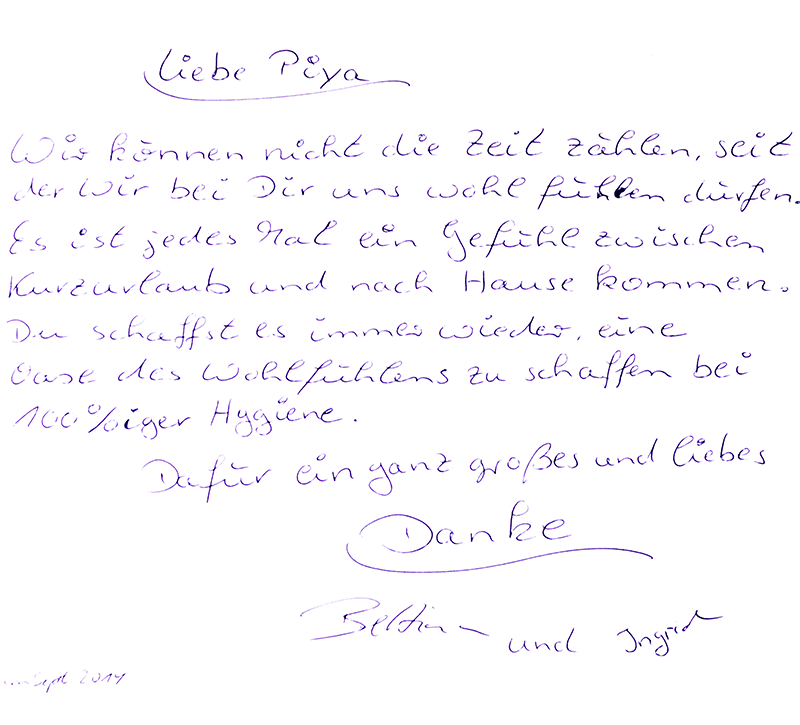 Liebe Piya
Wir können nicht die Zeit zählen, seit
der wir bei Dir uns wohl fühlen dürfen.
Es ist jedes Mal ein Gefühl zwischen
Kurzurlaub und nach Hause kommen.
Du schaffst es immer wieder, eine
Oase des Wohlfühlens zu schaffen bei
100%iger Hygiene.
Dafür ein ganz großes und liebes
Danke
und Ingrid
Sept 2014